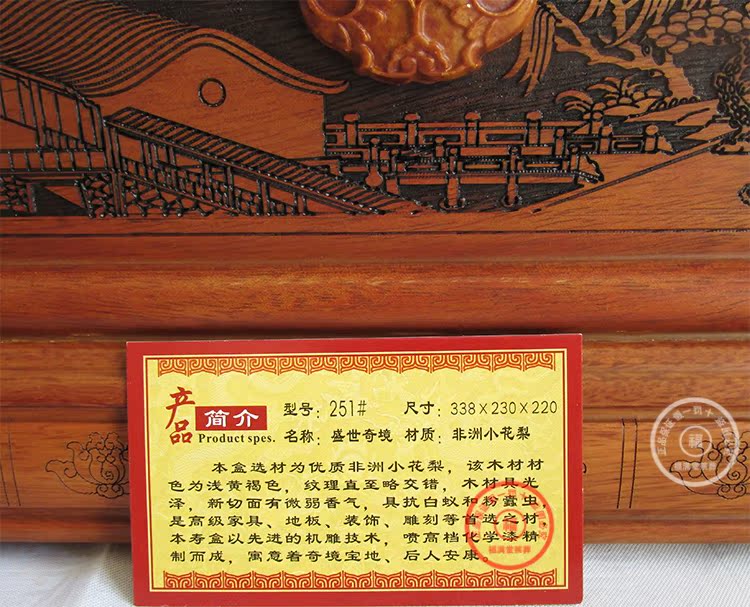 产品
简介
Product spes.
型号：251# 尺寸：338×230×220
名称：盛世奇境 材质：非洲小花梨
本盒选材为优质非洲小花梨，该木材材
色为浅黄褐色，纹理直至略交错，木材具光
泽，新切面有微弱香气，具抗白蚁和粉蠹虫
是高级家具、地板、装饰、雕刻等首选之材
本寿盒以先进的机雕技术，喷高档化学漆精
制而成，寓意着奇境宝地、后人安康。